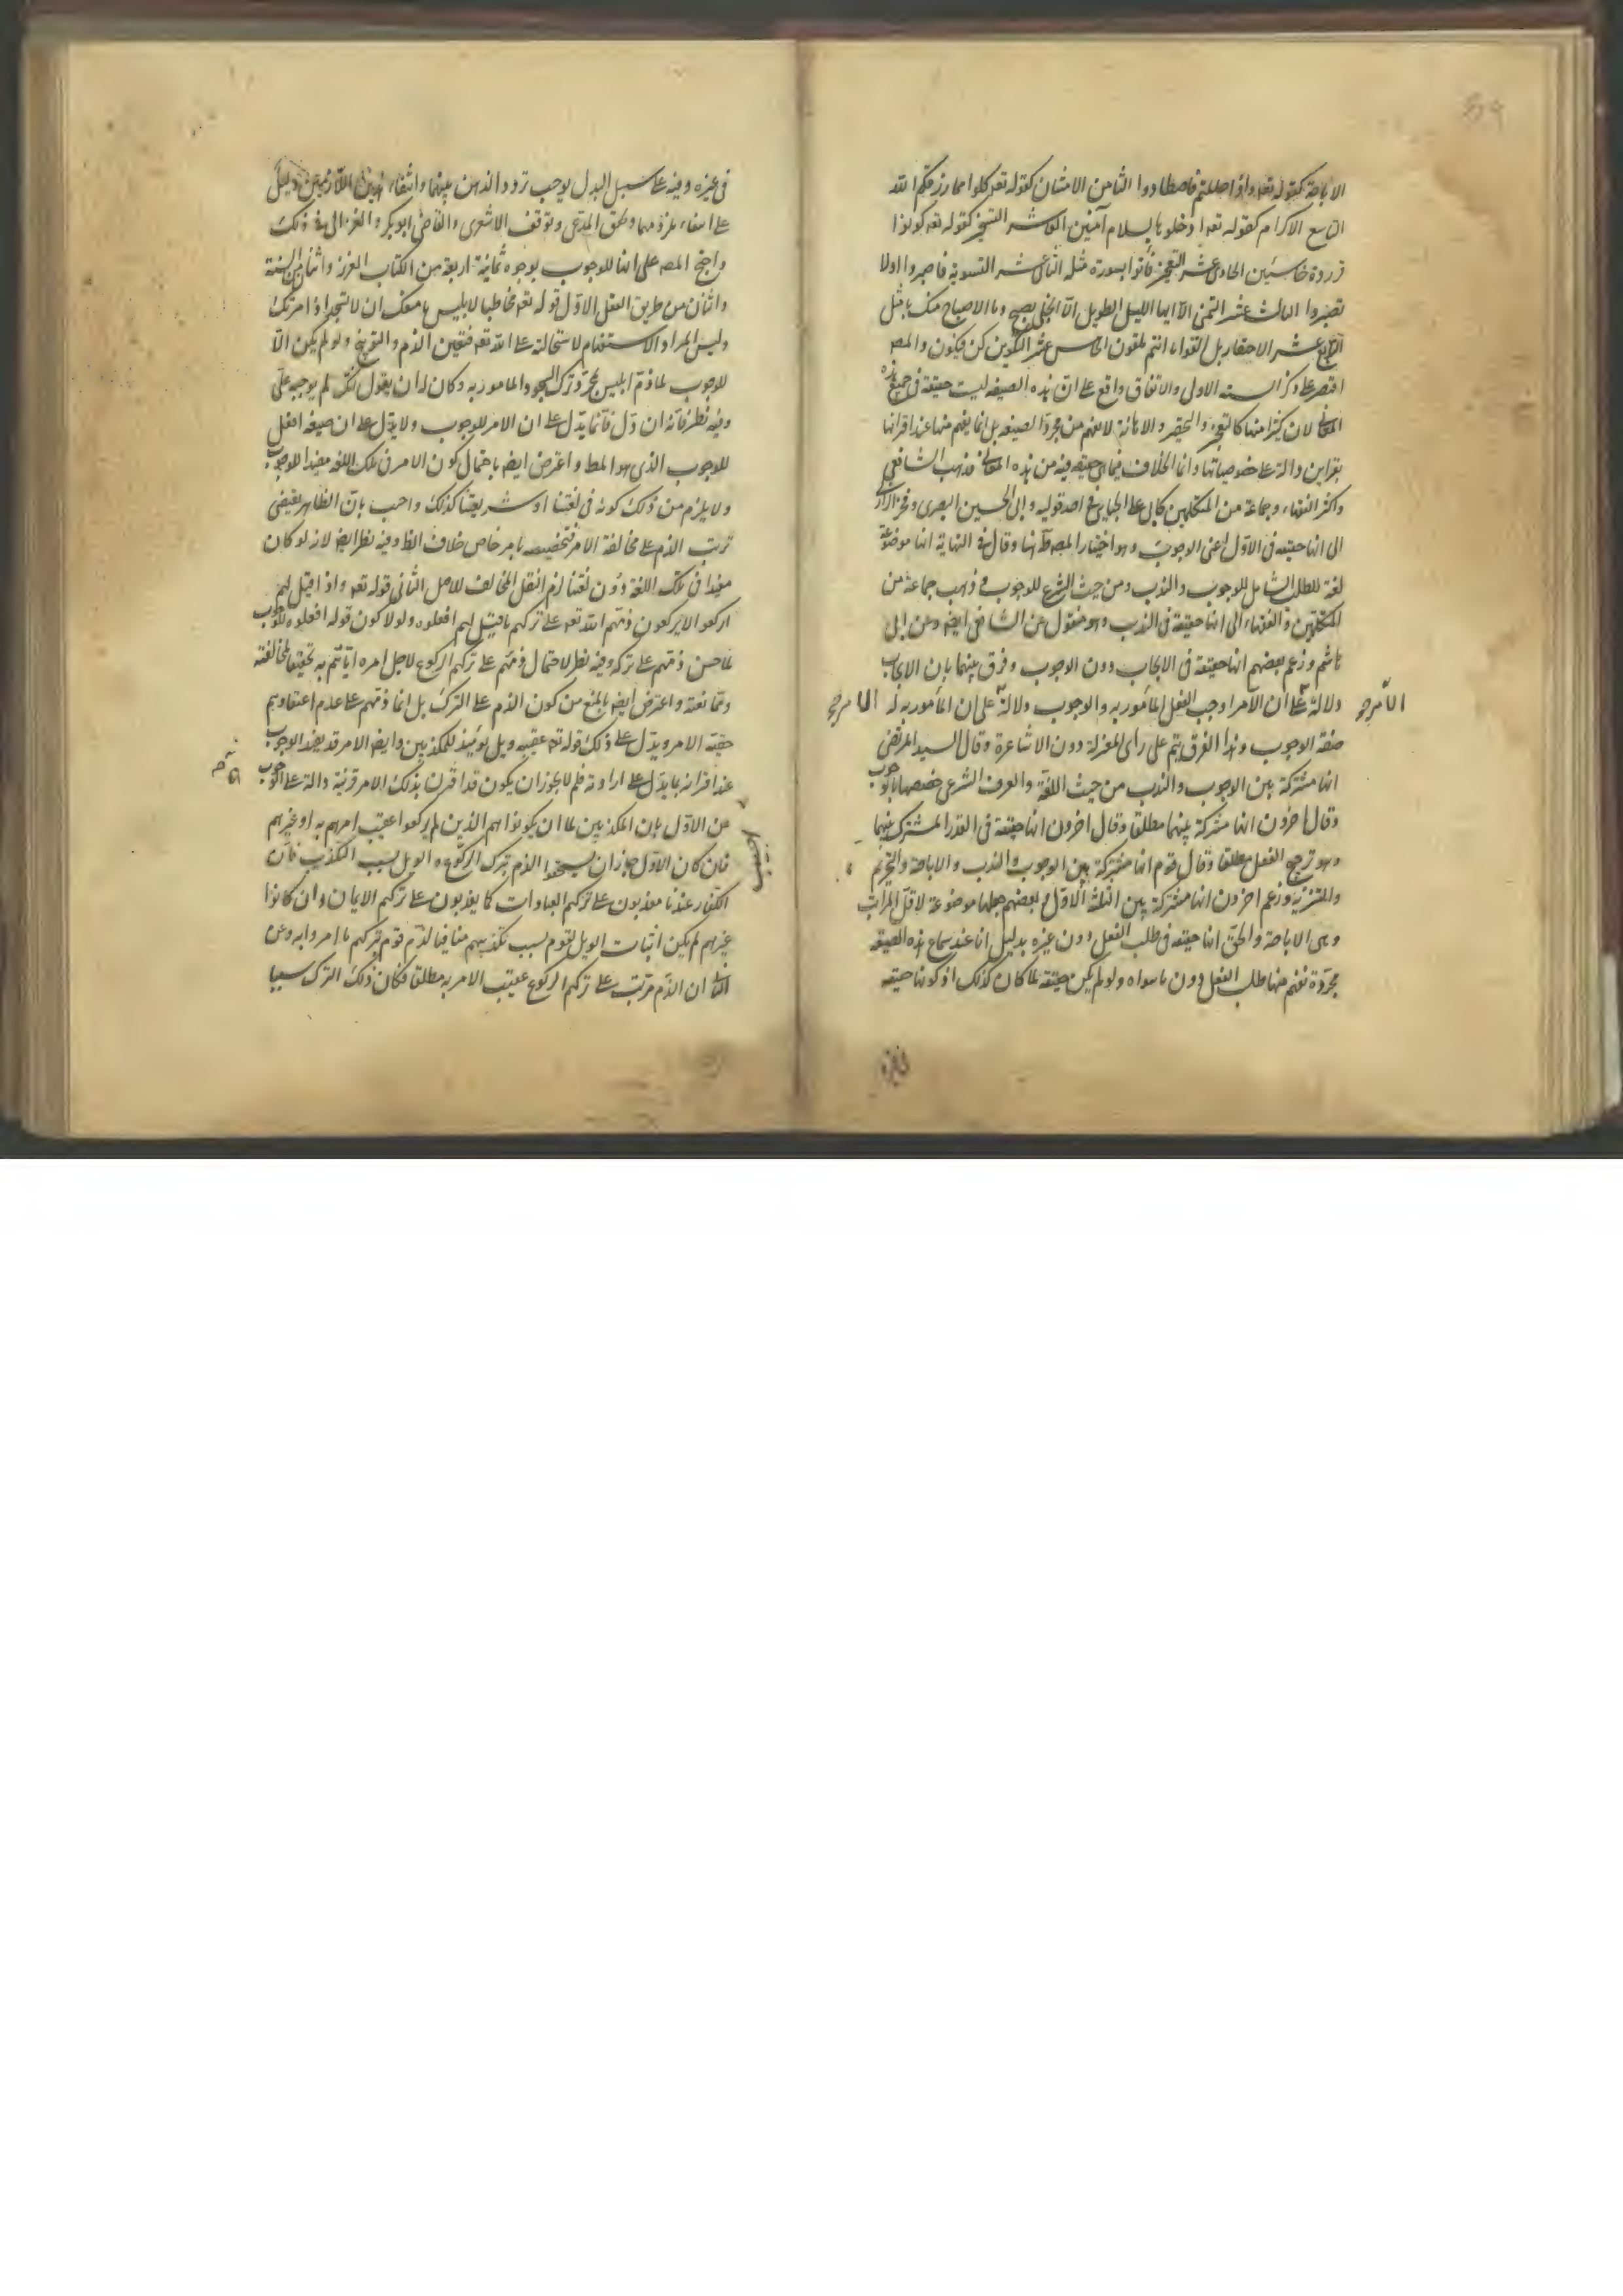 الاباحة كقوله تعه واذا حللتم فاصطادوا الثامن الامتنان كقوله تعه كلوا مما رزقكم الله
التاسع الاكرام كقوله تعه ادخلوها بسلام آمنين العاشر التسخير كقوله تعه كونوا
قردة خاسئين الحادى عشر التعجيز فأتوا بسورة مثله الثانى عشر التسوية فاصبروا اولا
تصبروا الثالث عشر التمنى الا ايها الليل الطويل الا انجلى بصبح وما الاصباح منك بامثل
الرابع عشر الاحتقار بل القوا ما انتم ملقون الخامس عشر التكوين كن فيكون والمصه
اقتصر على ذكر الستة الاولى والاتفاق واقع على ان هذه الصيغه ليست حقيقة فى جميع هذه
المعانى لان كثيرا منها كالتعجيز والتحقير والاهانة لا تفهم من مجرد الصيغه بل انما يفهم منها عند اقترانها
بقراين دالة على خصوصياتها وانما الخلاف فيما هى حقيقه فيه من هذه المعانى فذهب الشافعى
واكثر الفقهاء وجماعة من المتكلمين كابى على الجبائى فى احد قوليه وابى الحسين البصرى وفخر الرازى
الى انها حقيقه فى الاول اعنى الوجوب وهو اختيار المصه ههنا وقال فى النهاية انها موضوعة
لغة للطلب الشامل للوجوب والندب ومن حيث الشرع للوجوب وذهب جماعة من
المتكلمين والفقهاء الى انها حقيقة فى الندب وهو منقول من الشافعى ايضه وعن ابى
هاشم وزعم بعضهم انها حقيقة فى الايجاب دون الوجوب وفرق بينهما بان الايجاب
دلالة على ان الآمر اوجب الفعل المأمور به والوجوب دلالة على ان المأمور به له
صفة الوجوب وهذا الفرق يتم على راى المعتزلة دون الاشاعرة وقال السيد المرتضى
انها مشتركة بين الوجوب والندب من حيث اللغة والعرف الشرعى خصصها بالوجوب
وقال اخرون انها مشتركة بينهما مطلقا وقال اخرون انها حقيقة فى القدر المشترك بينهما
وهو ترجيح الفعل مطلقا وقال قوم انها مشتركة بين الوجوب والندب والاباحة والتحريم
والتنزيه وزعم اخرون انها مشتركة بين الثلثة الاول وبعضهم جعلها موضوعة لاقل المراتب
وهى الاباحة والحق انها حقيقه فى طلب الفعل دون غيره بدليل انا عند سماع هذه الصيغه
مجردة نفهم منها طلب الفعل دون ما سواه ولو لم يكن حقيقة لما كان كذلك اذ كونها حقيقه
فى غيره وفيه على سبيل البدل يوجب تردد الذهن بينهما وانتفاء هذين اللازمين دليل
على انتفاء ملزومهما وتحقق المدعى وتوقف الاشعرى والقاضى ابوبكر والغزالى فى ذلك
واحتج المصه على انها للوجوب بوجوه ثمانية اربعة من الكتاب العزيز واثنان من السنة
واثنان من طريق العقل الاول قوله تعه مخاطبا لابليس ما منعك ان لا تسجد اذ امرتك
وليس المراد الاستفهام لاستحالته على الله تعه فتعين الذم والتوبيخ ولو لم يكن الامر
للوجوب لما ذم ابليس بمجرد ترك السجود المامور به وكان له ان يقول انك لم توجبه على
وفيه نظر فانه ان دل فانما يدل على ان الامر للوجوب ولا يدل على ان صيغه افعل
للوجوب الذى هو المط واعترض ايضه باحتمال كون الامر فى تلك اللغه مفيدا للوجوب
ولا يلزم من ذلك كونه فى لغتنا او شريعتنا كذلك واجيب بان الظاهر يقتضى
ترتب الذم على مخالفة الامر فتخصيصه بامر خاص خلاف الظ وفيه نظر ايضه لانه لو كان
مفيدا فى تلك اللغة دون لغتنا لزم النقل المخالف للاصل الثانى قوله تعه واذا قيل لهم
اركعوا لا يركعون ذمهم الله تعه على تركهم ما قيل لهم افعلوه ولولا كون قوله افعلوه للوجوب
لما حسن ذمهم على تركه وفيه نظر لاحتمال ذمهم على تركهم الركوع لاجل امره اياهم به تحقيقا لمخالفته
وممانعته واعترض ايضه بالمنع من كون الذم على الترك بل انما ذمهم على عدم اعتقادهم
حقية الامر ويدل على ذلك قوله تعه عقيبه ويل يومئذ للمكذبين وايضه الامر قد يفيد الوجوب
عند اقترانه بما يدل على ارادته فلم لا يجوز ان يكون قد اقترن بذلك الامر قرينة دالة على الوجوب
عن الاول بان المكذبين اما ان يكونوا هم الذين لم يركعوا عقيب امرهم به او غيرهم
فان كان الاول جاز ان يستحقوا الذم بترك الركوع والويل بسبب التكذيب فان
الكفار عندنا معذبون على تركهم العبادات كما يعذبون على تركهم الايمان وان كانوا
غيرهم لم يكن اثبات الويل لقوم بسبب تكذيبهم منافيا لذم قوم بتركهم ما امروا به وعن
الثانى ان الذم مرتب على تركهم الركوع عقيب الامر به مطلقا فكان ذلك الترك سببا